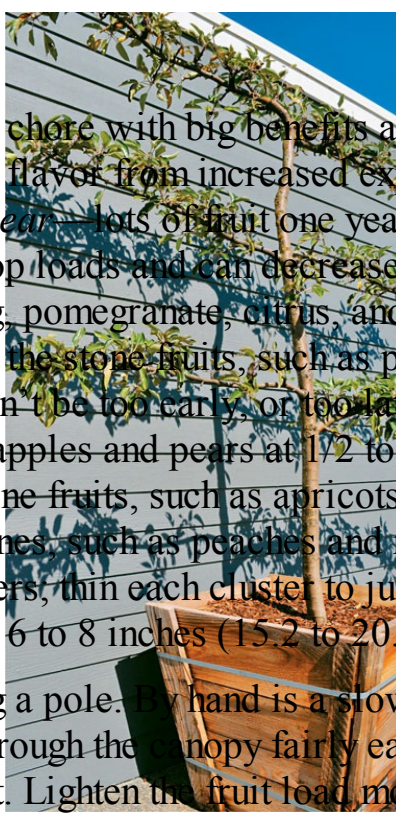 chore with big benefits a
flavor from increased ex
ear—lots of fruit one yea
op loads and can decrease
g, pomegranate, citrus, and
the stone fruits, such as p
n’t be too early, or too la
apples and pears at 1/2 to
ne fruits, such as apricots
nes, such as peaches and
ers; thin each cluster to ju
6 to 8 inches (15.2 to 20.
g a pole. By hand is a slow
rough the canopy fairly ea
t. Lighten the fruit load mo